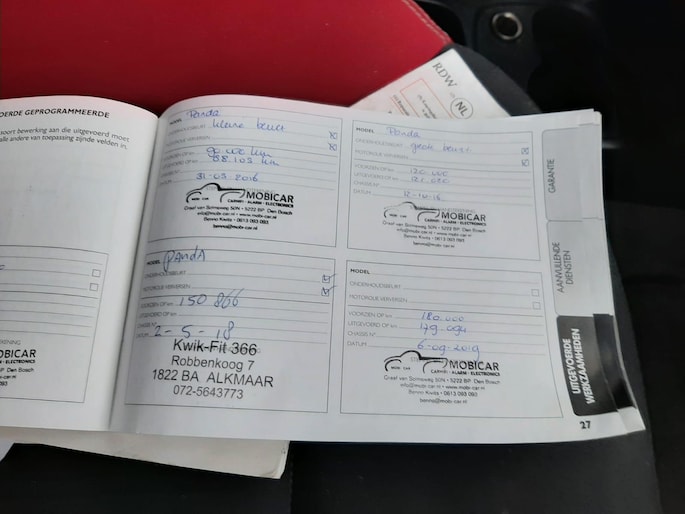 OERDE GEPROGRAMMEERDE
soort bewerking aan die uitgevoerd moet
alle andere van toepassing zijnde velden in.
MOBICAR
ALARM - ELECTRONICS
MODEL Panda
ONDERHOUDSBEURT kleine beurt
MOTOROLIE VERVERSEN
VOORZIEN OP km
UITGEVOERD OP km 88.103 km
CHASSIS N°
DATUM 31-05-2016
MOBICAR
MOBI - CAR CARHIFI - ALARM - ELECTRONICS
Graaf van Solmsweg 50N - 5222 BP Den Bosch
info@mobi-car.nl - www.mobi-car.nl
Benno Kwits - 0613 093 093
benno@mobi-car.nl
MODEL Panda
ONDERHOUDSBEURT grote beurt
MOTOROLIE VERVERSEN
VOORZIEN OP km 120.000
UITGEVOERD OP km
CHASSIS N°
DATUM
MOBICAR
MOBI - CAR CARHIFI - ALARM - ELECTRONICS
Graaf van Solmsweg 50N - 5222 BP Den Bosch
info@mobi-car.nl - www.mobi-car.nl
Benno Kwits - 0613 093 093
benno@mobi-car.nl
MODEL PANDA
ONDERHOUDSBEURT
MOTOROLIE VERVERSEN
VOORZIEN OP km 150 866
UITGEVOERD OP km
CHASSIS N°
DATUM 2-5-18
Kwik-Fit 366
Robbenkoog 7
1822 BA ALKMAAR
072-5643773
MODEL
ONDERHOUDSBEURT
MOTOROLIE VERVERSEN
VOORZIEN OP km 180.000
UITGEVOERD OP km 179.094
CHASSIS N°
DATUM 6-09-2019
MOBICAR
MOBI - CAR CARHIFI - ALARM - ELECTRONICS
Graaf van Solmsweg 50N - 5222 BP Den Bosch
info@mobi-car.nl - www.mobi-car.nl
Benno Kwits - 0613 093 093
benno@mobi-car.nl
RDW
NL
GARANTIE
AANVULLENDE
DIENSTEN
UITGEVOERDE
WERKZAAMHEDEN
27